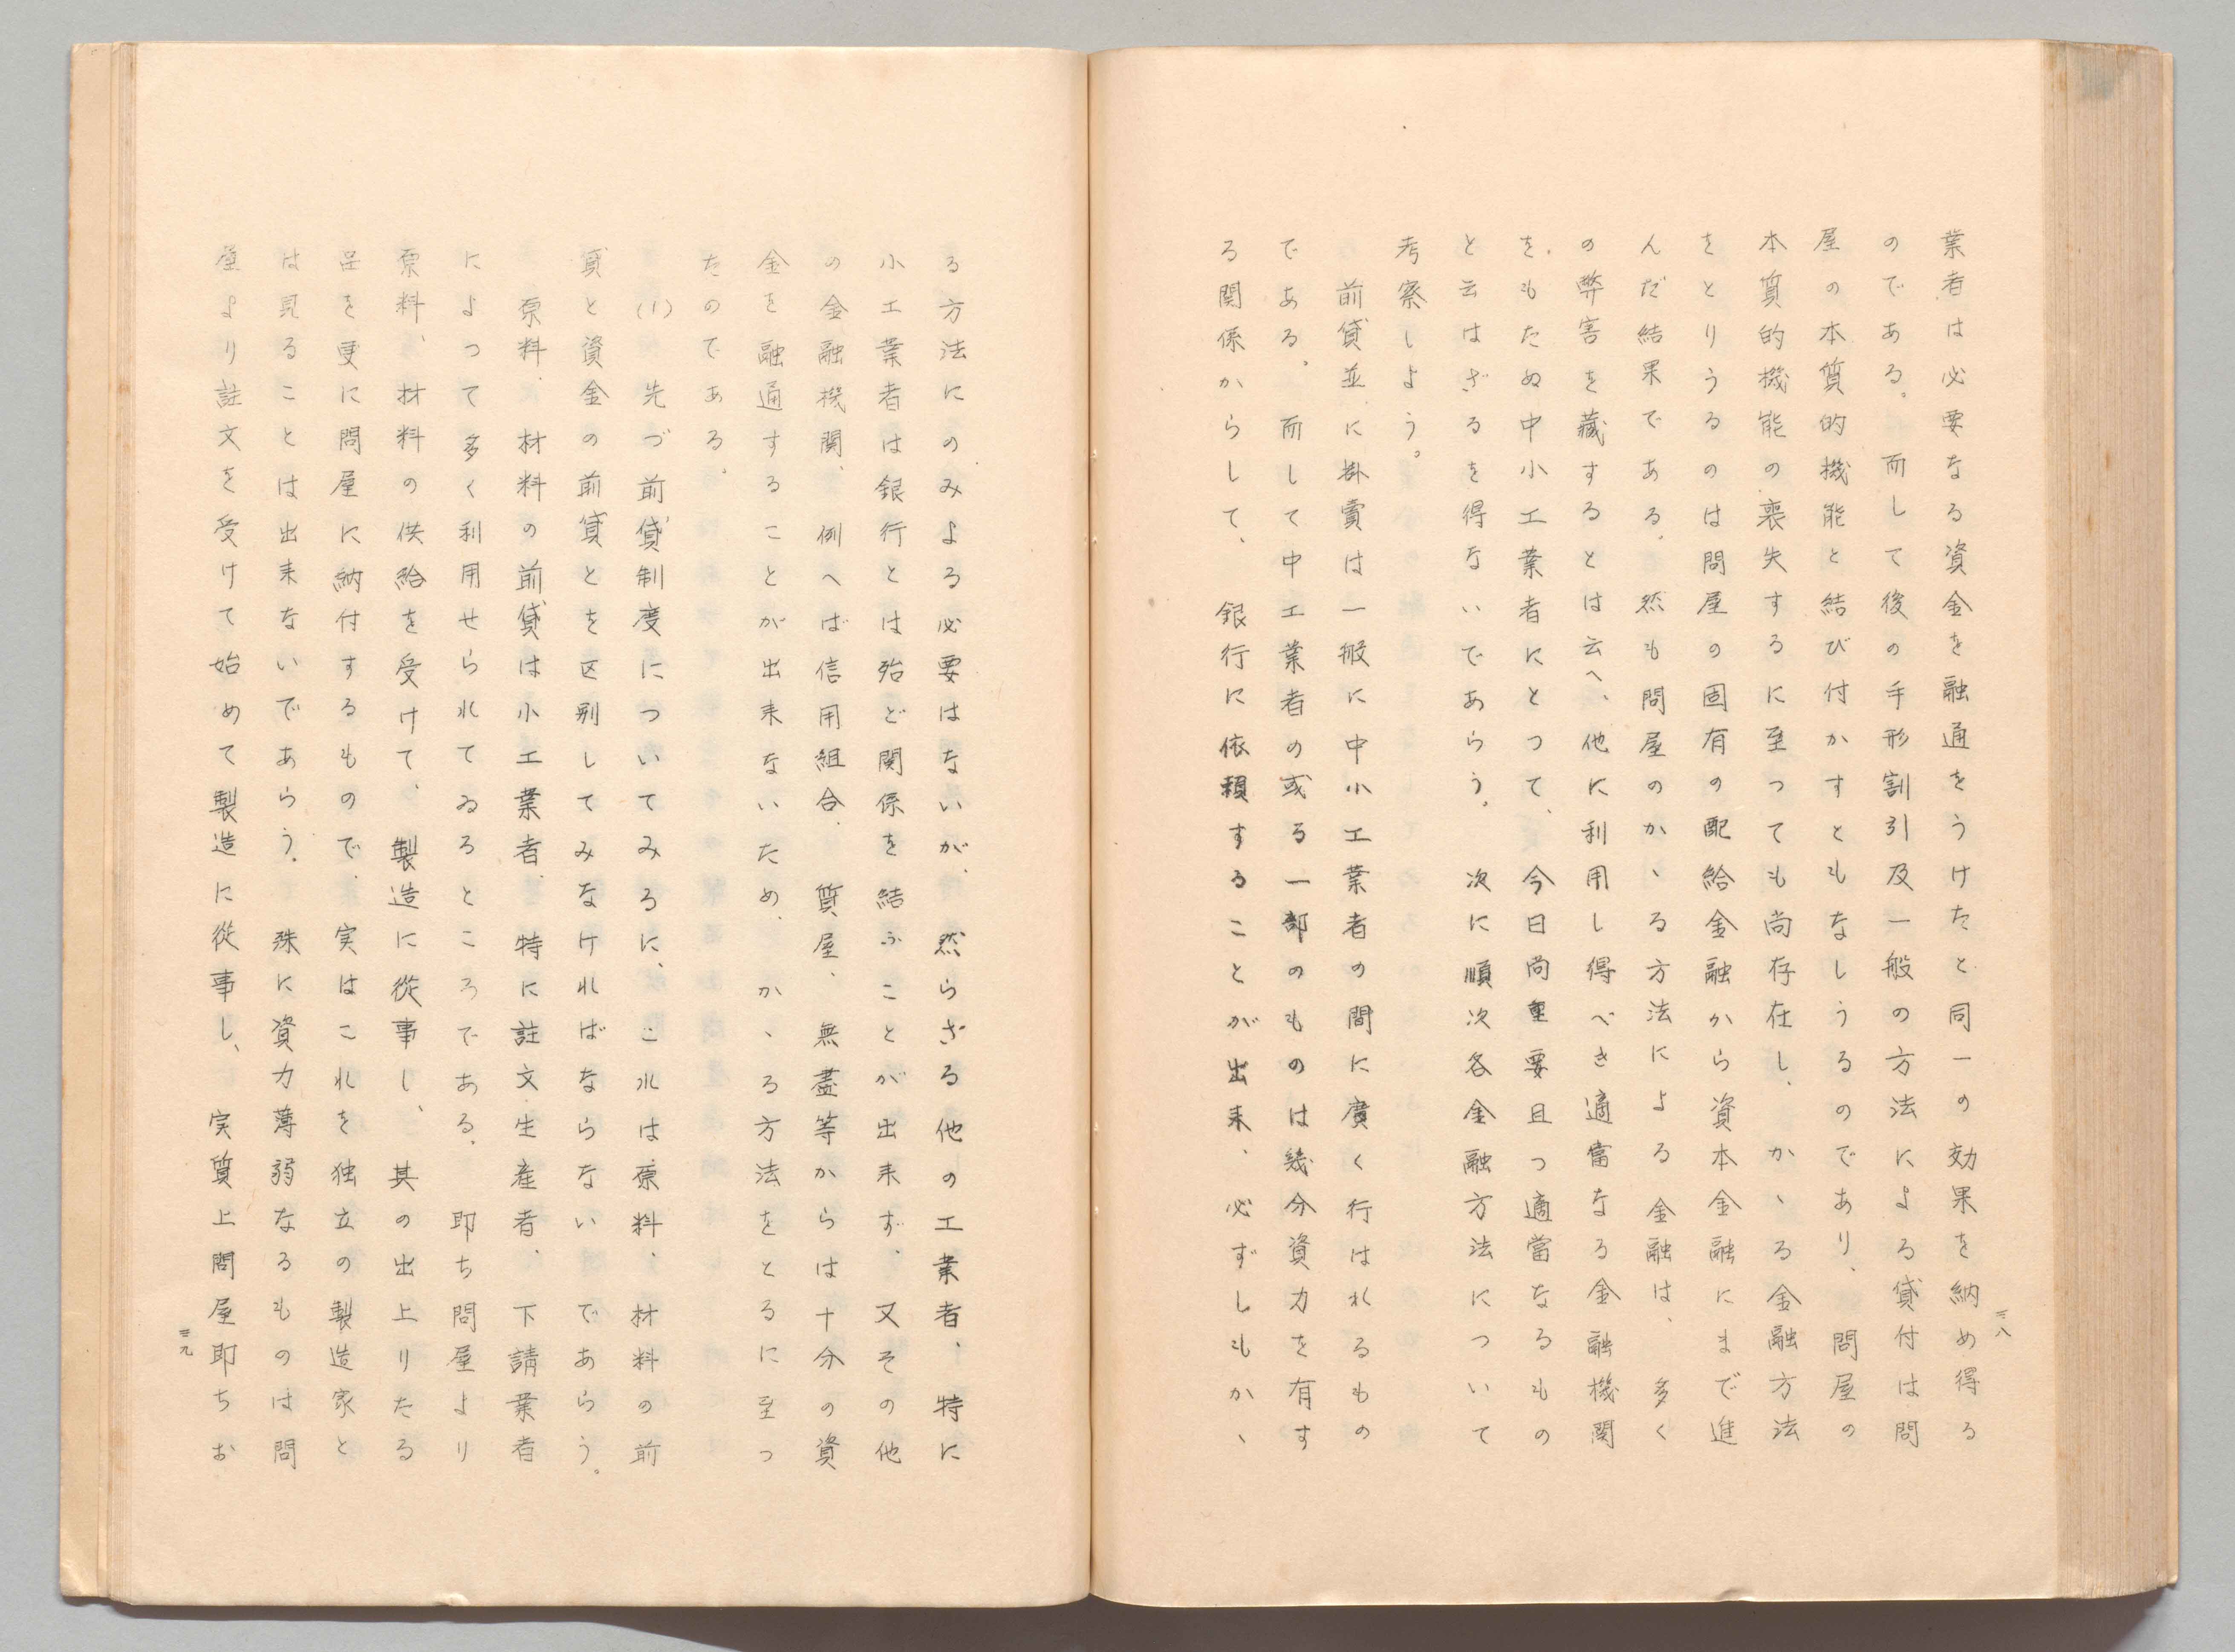 業者は必要なる資金を融通をうけたと同一の効果を納め得る
のである。而して後の手形割引及一般の方法による貸付は問
屋の本質的機能と結び付かすともなしうるのであり、問屋の
本質的機能の喪失するに至つても尚存在し、かゝる金融方法
をとりうるのは問屋の固有の配給金融から資本金融にまで進
んだ結果である。然も問屋のかゝる方法による金融は、多く
の弊害を藏するとは云へ、他に利用し得べき適當なる金融機関
をもたぬ中小工業者にとつて、今日尚重要且つ適當なるもの
と云はざるを得ないであらう。次に順次各金融方法について
考察しよう。
前貸並に掛賣は一般に中小工業者の間に廣く行はれるもの
である。而して中工業者の或る一部のものは幾分資力を有す
る関係からして、銀行に依頼することが出来、必ずしもかゝ
三八
る方法にのみよる必要はないが、然らざる他の工業者、特に
小工業者は銀行とは殆ど関係を結ふことが出来ず、又その他
の金融機関、例へば信用組合、質屋、無盡等からは十分の資
金を融通することが出来ないため、かゝる方法をとるに至つ
たのである。
(1) 先づ前貸制度についてみるに、これは原料、材料の前
貸と資金の前貸とを区別してみなければならないであらう。
原料、材料の前貸は小工業者、特に註文生産者、下請業者
によつて多く利用せられてゐるところである。即ち問屋より
原料、材料の供給を受けて、製造に從事し、其の出上りたる
品を更に問屋に納付するもので、実はこれを独立の製造家と
は見ることは出来ないであらう。殊に資力薄弱なるものは問
屋より註文を受けて始めて製造に從事し、実質上問屋即ちお
三九